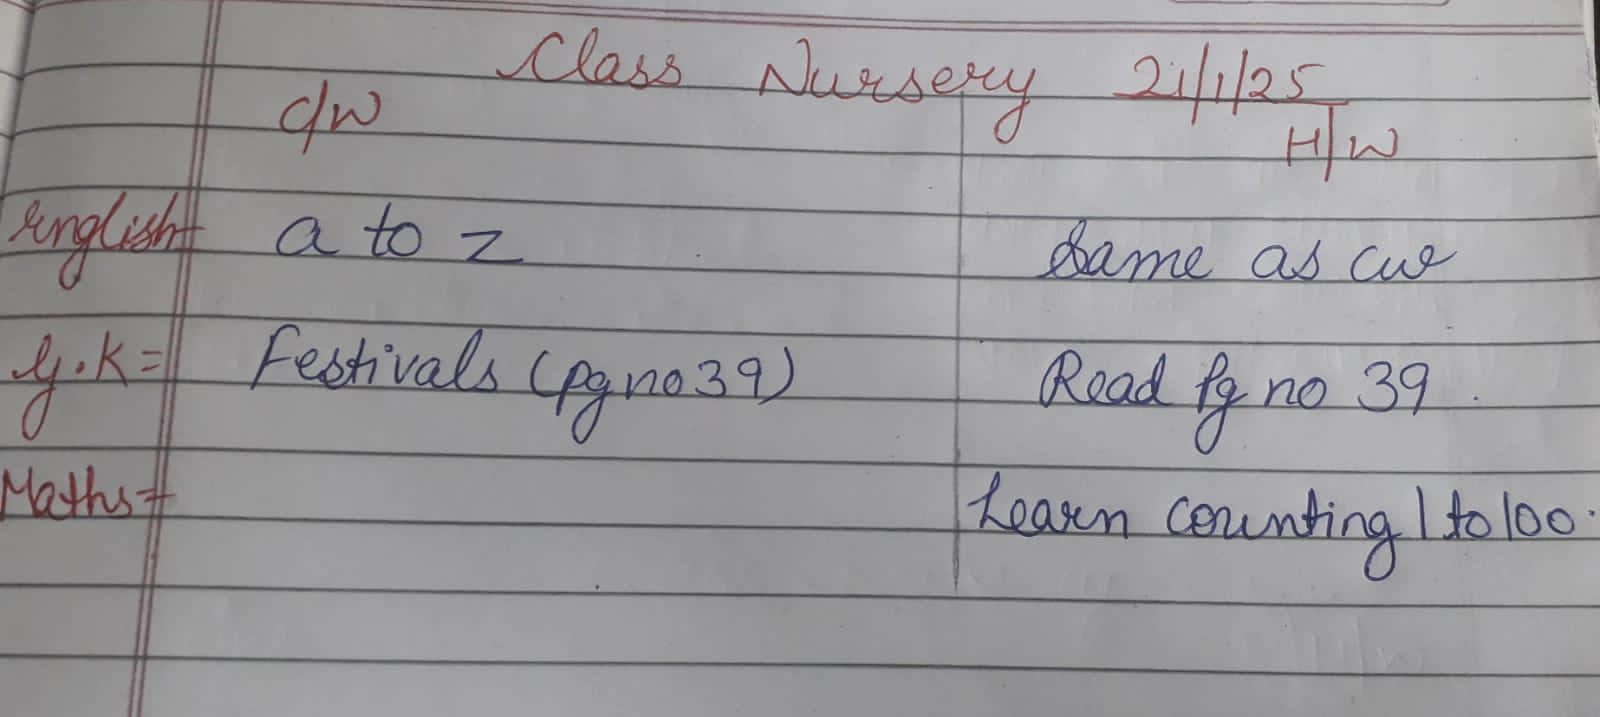 Class Nursery 21/1/25
C/W H/W
English- a to z Same as cw
G.K= Festivals (pg no 39) Read Pg no 39.
Maths= Learn counting 1 to 100.